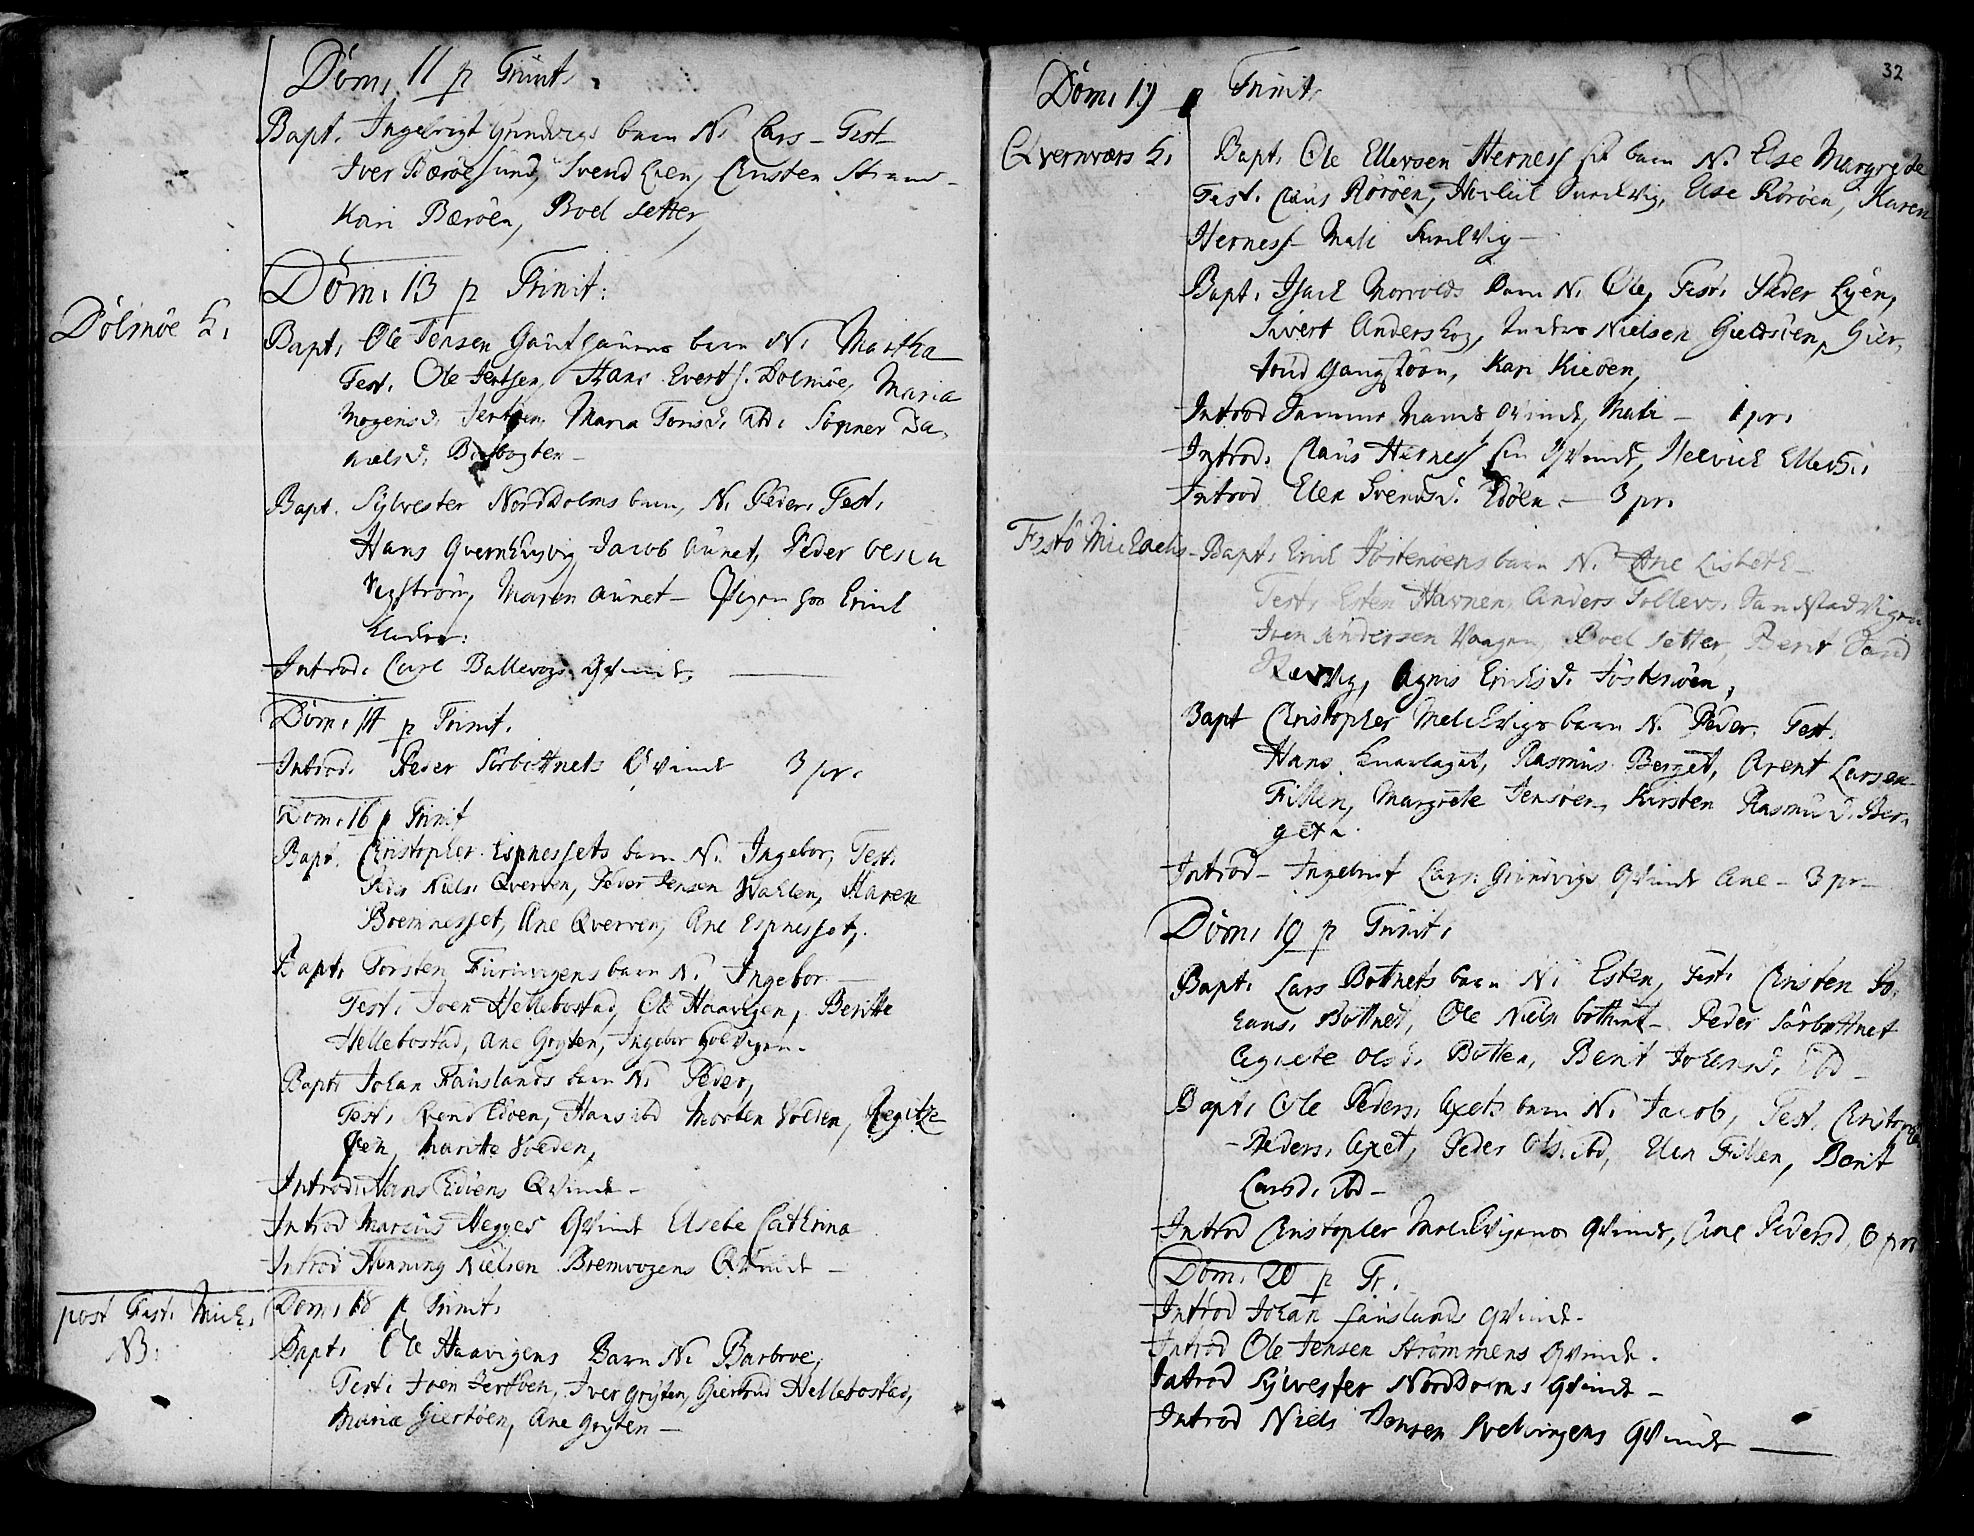 Dom. 11 p Trinit.
Bapt. Ingebrigt Grindvigs barn N. Lars - Test
Iver Bæröesund, Svend Öen, Christen Strand
Kari Bæröen, Boel Setter,
Dom. 13 p Trinit:
Dolmöe K.
Bapt. Ole Jensen barn N. Martha
Test. Ole Jertsen, Hans Evertss. Dolmöe, Maria
Mogensd. Jertöen, Maria Tomsd. ibd. Sopner Da-
nielsd.
Bapt. Sylvester NordDolms barn, N. Peder. Test.
Hans Qvernhusvig, Jacob Aunet, Peder
Maren Aunet - Pigen hos Erick
Introd. Carl Ballevogs Qvinde
Dom. 14 p Trinit.
Introd. Peder Sörbottnets Qvinde 3 pr.
Dom. 16 p Trinit
Bapt. Christopher Espnessets barn N. Ingebor, Test.
Niels. Qverven, Peder Jensen Wahlen, Maren
Bremnesset, Ane Qverven, Ane Espnesset,
Bapt. Torsten Furuvigens barn N. Ingebor
Test. Joen Hellebostad, Ole Haavigen, Beritte
Hellebostad, Ane Gryten, Ingebor
Bapt. Johan Fauslands barn N. Peder,
Test. Svend Edöen, Hans ibd Morten Volden, Regitze
Öen, Maritte Volden,
Introd. Hans Edöens Qvinde -
Introd Marcus Hegges Qvinde Elsebe Cathrina
Introd Henning Nielsen Bremvogens Qvinde -
post Fest. Mich.
NB.
Dom. 18 p Trinit.
Bapt. Ole Haavigens Barn N. Barbroe,
Test. Joen Jertöen, Iver Gryten, Giertrud Hellebostad,
Maria Giertöen, Ane Gryten -
32
Dom. 17 p Trinit.
Qvernværs K.
Bapt. Ole Ellevsen Herness sit barn N. Else Margrede
Test. Claus Röröen, Sundvig, Else Röröen, Karen
Herness Mali Sundvig -
Bapt. Isach Morvolds Barn N. Ole, Test. Peder Öyen,
Sivert Anderskog, Anders Nielsen Gieldsöen, Gier-
trud Gangstöen, Kari Kiöen,
Introd Qvinde, Mali - 1 pr.
Introd. Claus Herness sin Qvinde, Ellevsd.
Introd Elen Svendsd. Edöen - 3 pr.
Festo Michaelis - Bapt. Erich Jöstenöens barn N. Ane Lisbeth -
Test. Esten Havnen, Anders Tollevs. Sandstadvigen
Iven Andersen Vaagen, Boel Setter, Berit Sand
Agnis Erichsd. Jöstenöen,
Bapt Christopher Melchvigs barn N. Peder. Test.
Hans Knarlaget, Rasmus Berget, Arent Larsen
Fillen, Margrete Jensöen, Kirsten Rasmusd. Ber-
get.
Introd - Ingebrict Lars. Grindvigs Qvinde Ane - 3 pr -
Dom. 19 p Trinit.
Bapt. Lars Bottnets barn N. Esten, Test. Christen Jo-
hans. Bottnet, Ole Niels. bottnet - Peder Sörbottnet
Agnete Olsd. Botten, Berit Johansd. ibd -
Bapt. Ole Peders. Axets barn N. Jacob, Test. Christopher
Peders. Axet, Peder Ols. ibd, Elen Fillen, Berit
Larsd. ibd -
Introd Christopher Melchvigens Qvinde, Ane Pedersd. 6 pr
Dom. 20 p Tr.
Introd Johan Fauslands Qvinde.
Introd Ole Jensen Strömmens Qvinde.
Introd Sylvester NordDolms Qvinde -
Introd Niels Jensen Qvinde